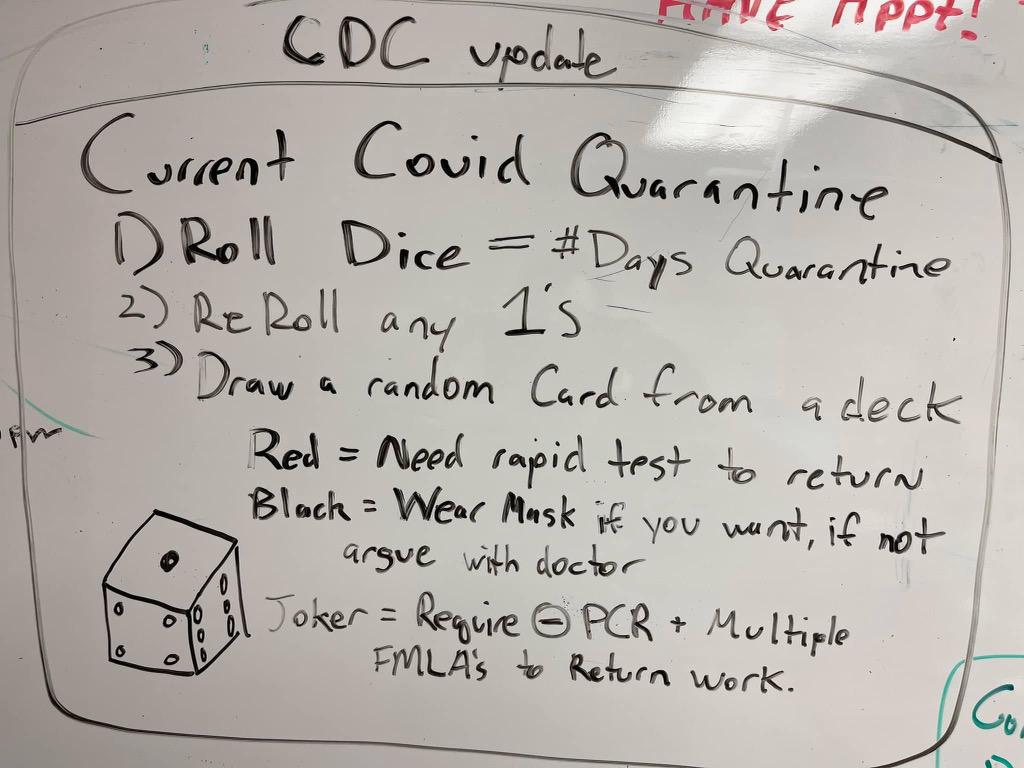 HAVE Appt!
CDC update
Current Covid Quarantine
1) Roll Dice = # Days Quarantine
2) ReRoll any 1's
3) Draw a random Card from a deck
Red = Need rapid test to return
Black = Wear Mask if you want, if not
argue with doctor
Joker = Require ⊖ PCR + Multiple
FMLA's to Return work.